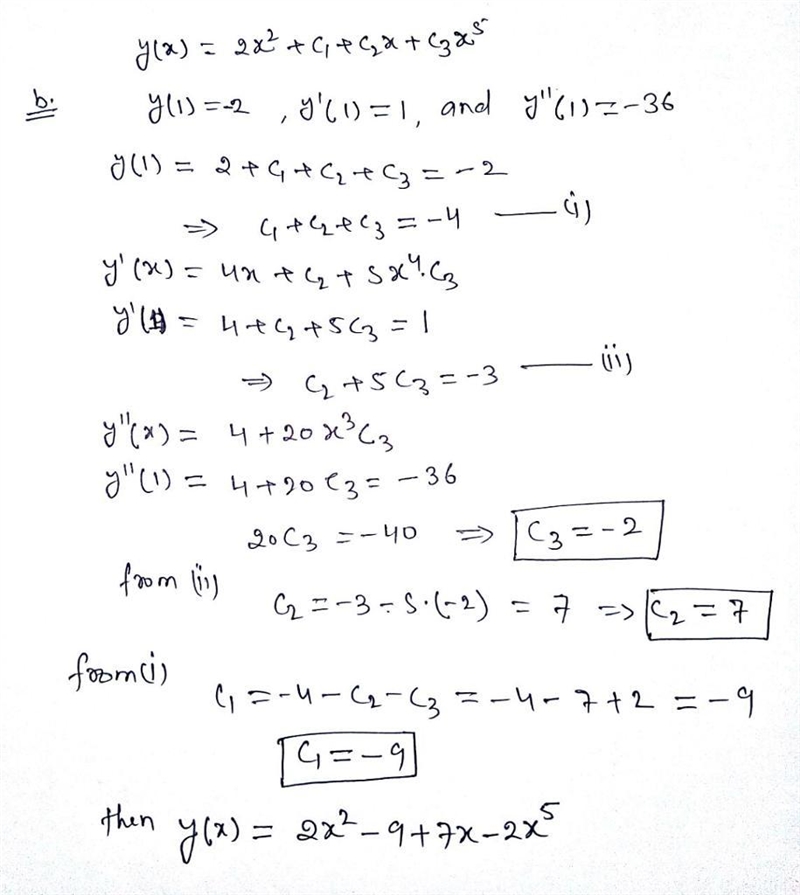 y(x) = 2x² + C₁ + C₂x + C₃x⁵
b. y(1) = -2 , y'(1) = 1, and y''(1) = -36
y(1) = 2 + C₁ + C₂ + C₃ = -2
⇒ C₁ + C₂ + C₃ = -4 —— (i)
y'(x) = 4x + C₂ + 5x⁴.C₃
y'(1) = 4 + C₂ + 5C₃ = 1
⇒ C₂ + 5C₃ = -3 —— (ii)
y''(x) = 4 + 20x³C₃
y''(1) = 4 + 20C₃ = -36
20C₃ = -40 ⇒ C₃ = -2
from (ii)
C₂ = -3 - 5·(-2) = 7 ⇒ C₂ = 7
from (i)
C₁ = -4 - C₂ - C₃ = -4 - 7 + 2 = -9
C₁ = -9
then y(x) = 2x² - 9 + 7x - 2x⁵